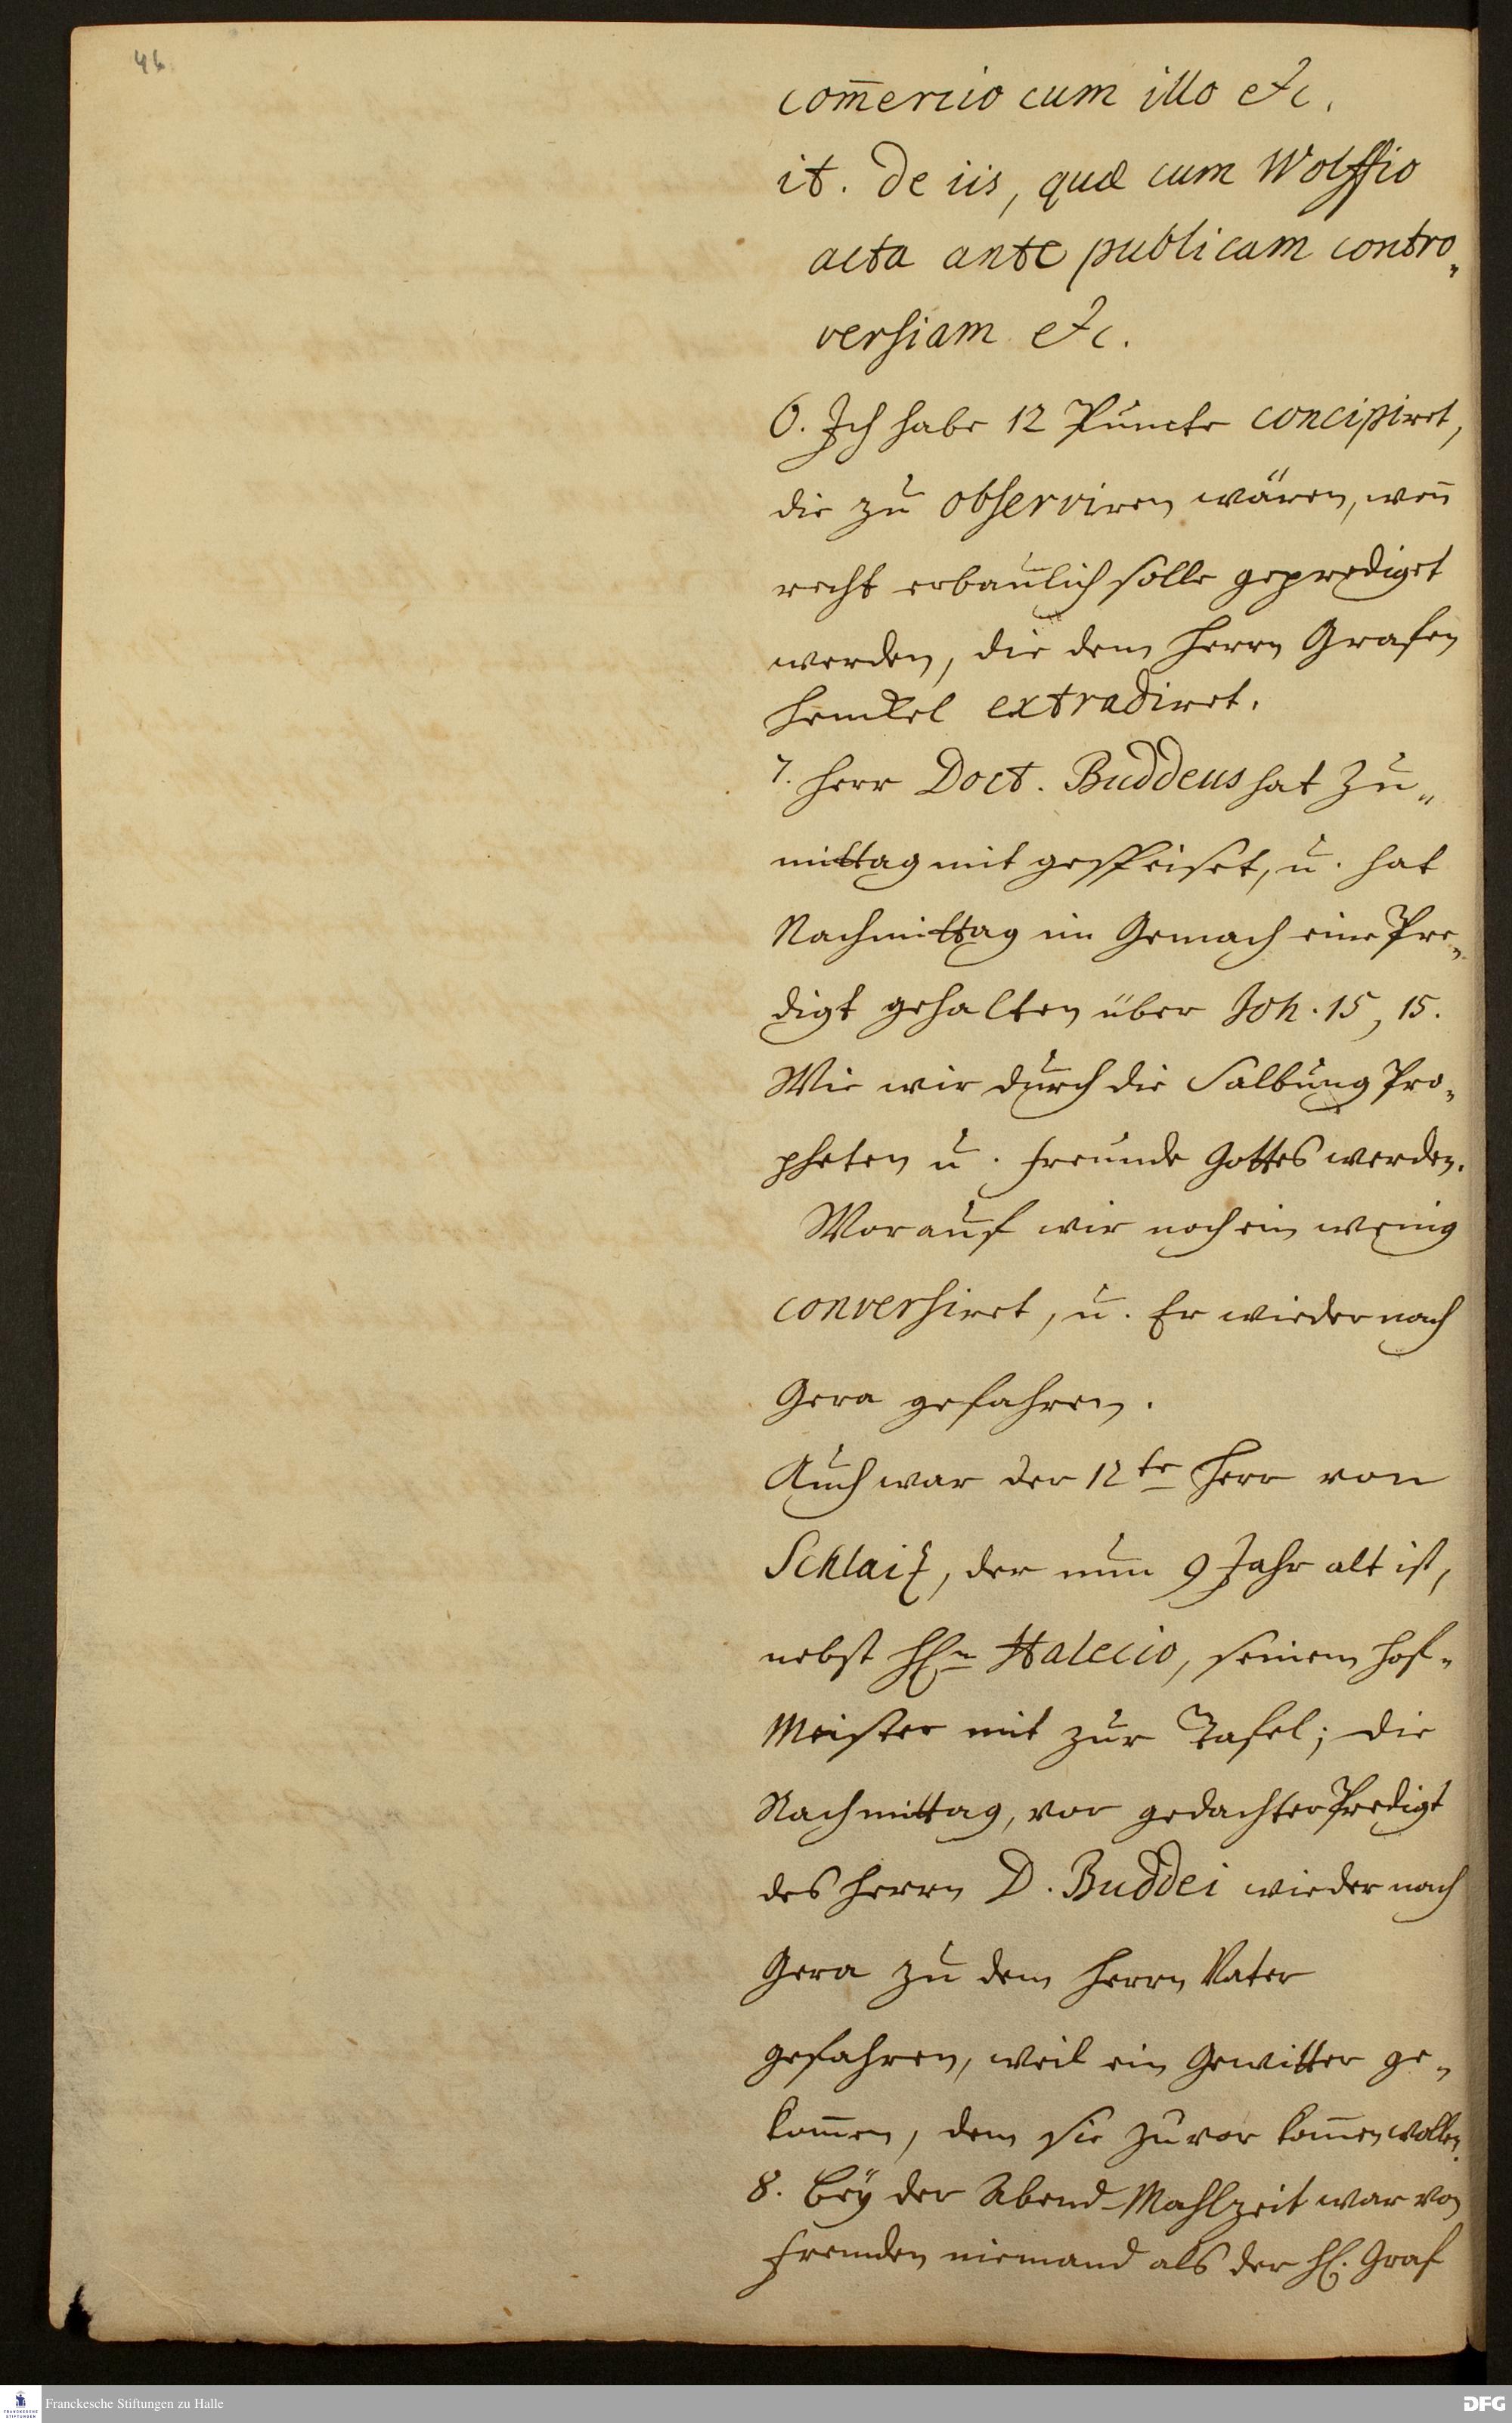 46.
com̅ercio cum illo etc.
it. de iis, quæ cum Wolffio
acta ante publicam contro„
versiam etc.
6. Ich habe 12 Puncte concipiret,
die zu observiren wären, weñ
recht erbaulich solle geprediget
werden, die dem Herrn Grafen
Henckel extradiret.
7. Herr Doct. Buddeus hat Zu„
mittag mit gespeiset, u. hat
Nachmittag im Gemach eine Pre„
digt gehalten über Joh. 15, 15.
Wie wir durch die Salbung Pro„
pheten u. Freunde Gottes werden.
Worauf wir noch ein wenig
conversiret, u. Er wieder nach
Gera gefahren.
Auch war der 12te Herr von
Schlaiz, der nun 9 Jahr alt ist,
nebst HEn Halecio, seinem Hof„
Meister mit zur Tafel; die
Nachmittag, vor gedachter Predigt
des Herrn D. Buddei wieder nach
Gera zu dem Herrn Vater
gefahren, weil ein Gewitter ge„
kom̅en, dem sie zuvor kom̅en wollen.
8. Bey der Abend-Mahlzeit war von
Fremden niemand als der H. Graf
Franckesche Stiftungen zu Halle
DFG